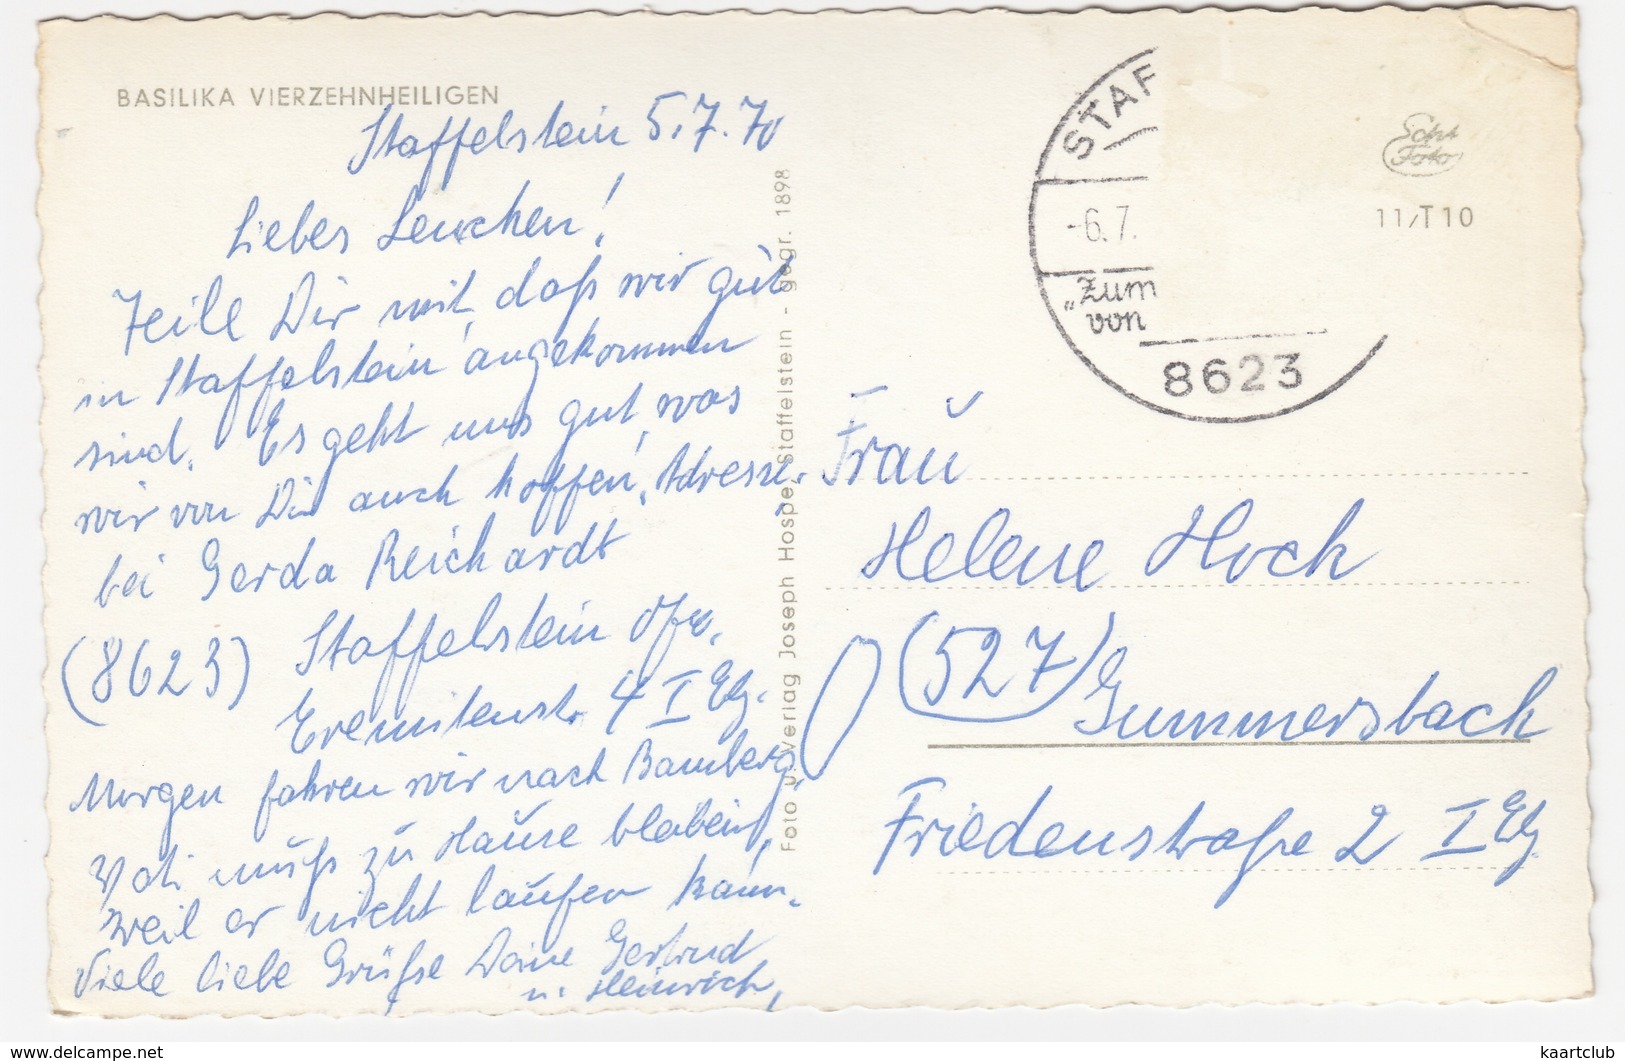 BASILIKA VIERZEHNHEILIGEN
Staffelstein 5.7.70
Liebes Lenchen!
Teile Dir mit, daß wir gut
in Staffelstein angekommen
sind. Es geht uns gut, was
wir von Dir auch hoffen. Adresse.
bei Gerda Reichardt
(8623) Staffelstein Ofr.
Eremitenstr. 4 I Etg.
Morgen fahren wir nach Bamberg,
Vati muß zu Hause bleiben,
weil er nicht laufen kann.
Viele liebe Grüße Deine Gertrud
u. Heinrich,
Foto u. Verlag Joseph Hospe, Staffelstein - gegr. 1898
STAF
-6.7.
"Zum
von
8623
Echt
Foto
11/T10
Frau
Helene Hoch
(527) Gummersbach
Friedenstraße 2 I Etg
www.delcampe.net
kaartclub